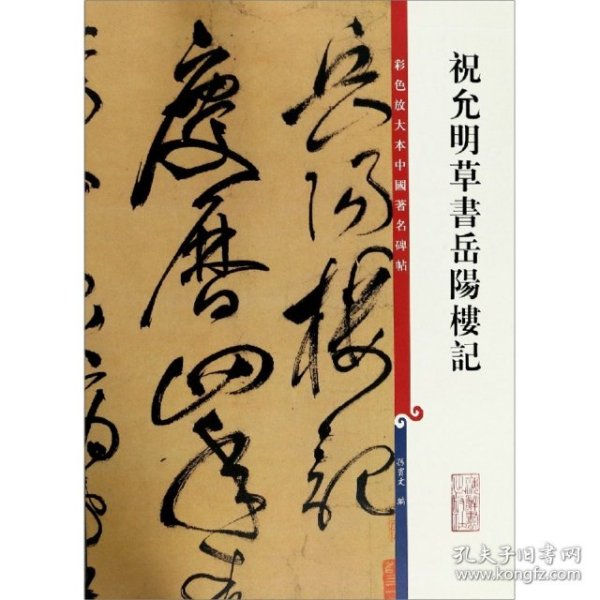 祝允明草書岳陽樓記
彩色放大本中國著名碑帖
孫寶文 編
岳陽樓記
慶曆四年
孔夫子旧书网
www.kongfz.com